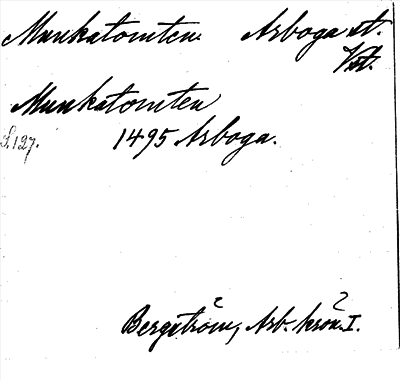 Munkatomten. Arboga st.
Vst.
Munkatomten
S. 127. 1495 Arboga.
Bergström, Arb. krön. I.